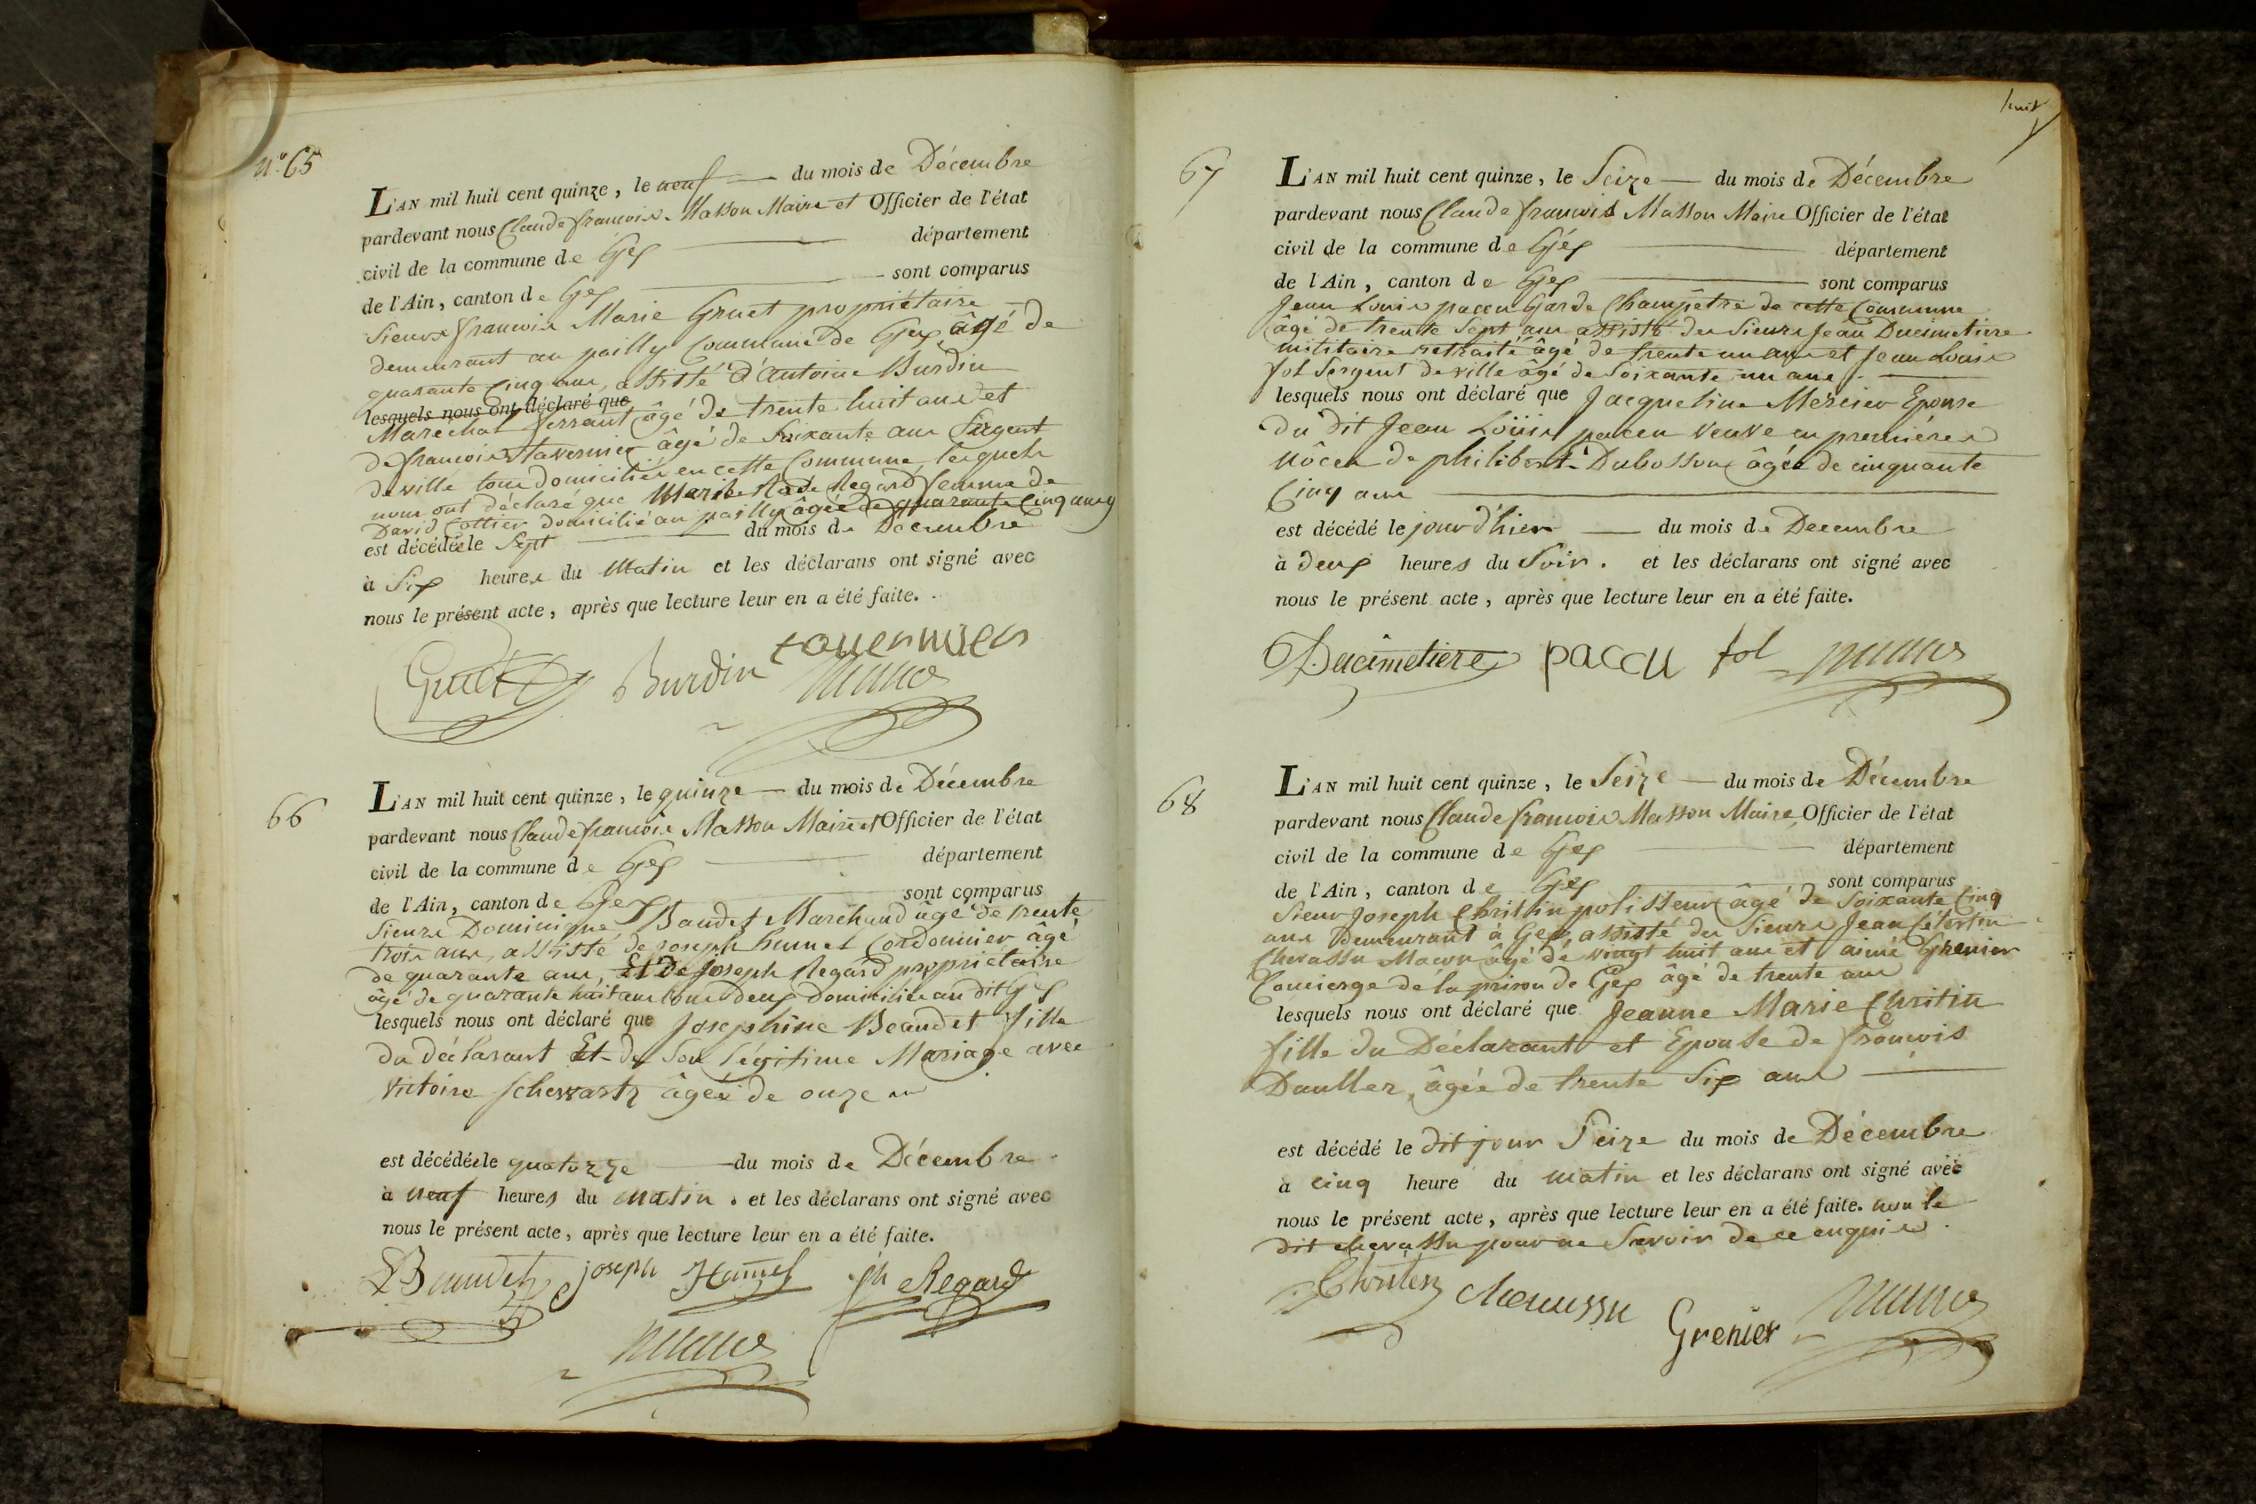 N.° 65
L'AN mil huit cent quinze, le neuf du mois de Décembre
pardevant nous Claude françois Masson Maire et Officier de l'état
civil de la commune de Gex département
de l'Ain, canton de Gex sont comparus
Sieurs françois Marie Gruet propriétaire
demeurant au pailly Commune de Gex, âgé de
quarante Cinq ans, assisté d'Antoine Burdin
lesquels nous ont déclaré que
Maréchal ferrant âgé de trente huit ans et
de françois tavernier âgé de Soixante ans Sergent
de ville tous domiciliés en cette Commune lesquels
nous ont déclaré que Marie Regard femme de
David Cottier domicilié au pailly âgée de quarante Cinq ans
est décédée le Sept du mois de Décembre
à Six heures du Matin et les déclarans ont signé avec
nous le présent acte, après que lecture leur en a été faite.
Gruet Burdin tavernier
66
L'AN mil huit cent quinze, le quinze du mois de Décembre
pardevant nous Claude françois Masson Maire et Officier de l'état
civil de la commune de Gex département
de l'Ain, canton de Gex sont comparus
Sieurs Dominique Baudet Marchand âgé de trente
trois ans, assisté de joseph hamel Cordonnier âgé
de quarante ans, Et de Joseph Regard propriétaire
âgé de quarante huit ans tous deux Domiciliés au dit Gex
lesquels nous ont déclaré que Josephine Beaudet fille
du déclarant Et de Son Légitime Mariage avec
Victoire Schewartz âgée de onze
est décédée le quatorze du mois de Décembre
à neuf heures du matin. et les déclarans ont signé avec
nous le présent acte, après que lecture leur en a été faite.
Baudet joseph Hamel jh Regard
huit
67
L'AN mil huit cent quinze, le Seize du mois de Décembre
pardevant nous Claude françois Masson Maire Officier de l'état
civil de la commune de Gex département
de l'Ain, canton de Gex sont comparus
Jean Louis paccu Garde Champêtre de cette Commune
âgé de trente Sept ans assisté des Sieurs Jean Ducimetiere
militaire retraité âgé de trente un ans et Jean Louis
fol Sergent de ville âgé de Soixante un ans
lesquels nous ont déclaré que Jacqueline Mercier Epouse
du dit Jean Louis paccu veuve en premières
nôces de philibert Dubosson âgée de cinquante
Cinq ans
est décédé le jour d'hier du mois de Decembre
à deux heures du Soir. et les déclarans ont signé avec
nous le présent acte, après que lecture leur en a été faite.
Ducimetiere paccu fol
68
L'AN mil huit cent quinze, le Seize du mois de Décembre
pardevant nous Claude françois Masson Maire Officier de l'état
civil de la commune de Gex département
de l'Ain, canton de Gex sont comparus
Sieur Joseph Christin polisseur âgé de Soixante Cinq
ans Demeurant à Gex, assisté des Sieurs Jean Célestin
Chevassu Maçon âgé de vingt huit ans et aimé Grenier
Concierge de la prison de Gex âgé de trente ans
lesquels nous ont déclaré que Jeanne Marie Christin
fille du Déclarant et Epouse de françois
Daullez, âgée de trente Six ans
est décédé le dit jour Seize du mois de Décembre
à cinq heure du matin et les déclarans ont signé avec
nous le présent acte, après que lecture leur en a été faite. non le
dit chevassu pour ne Savoir de ce enquis
Christin chevassu Grenier